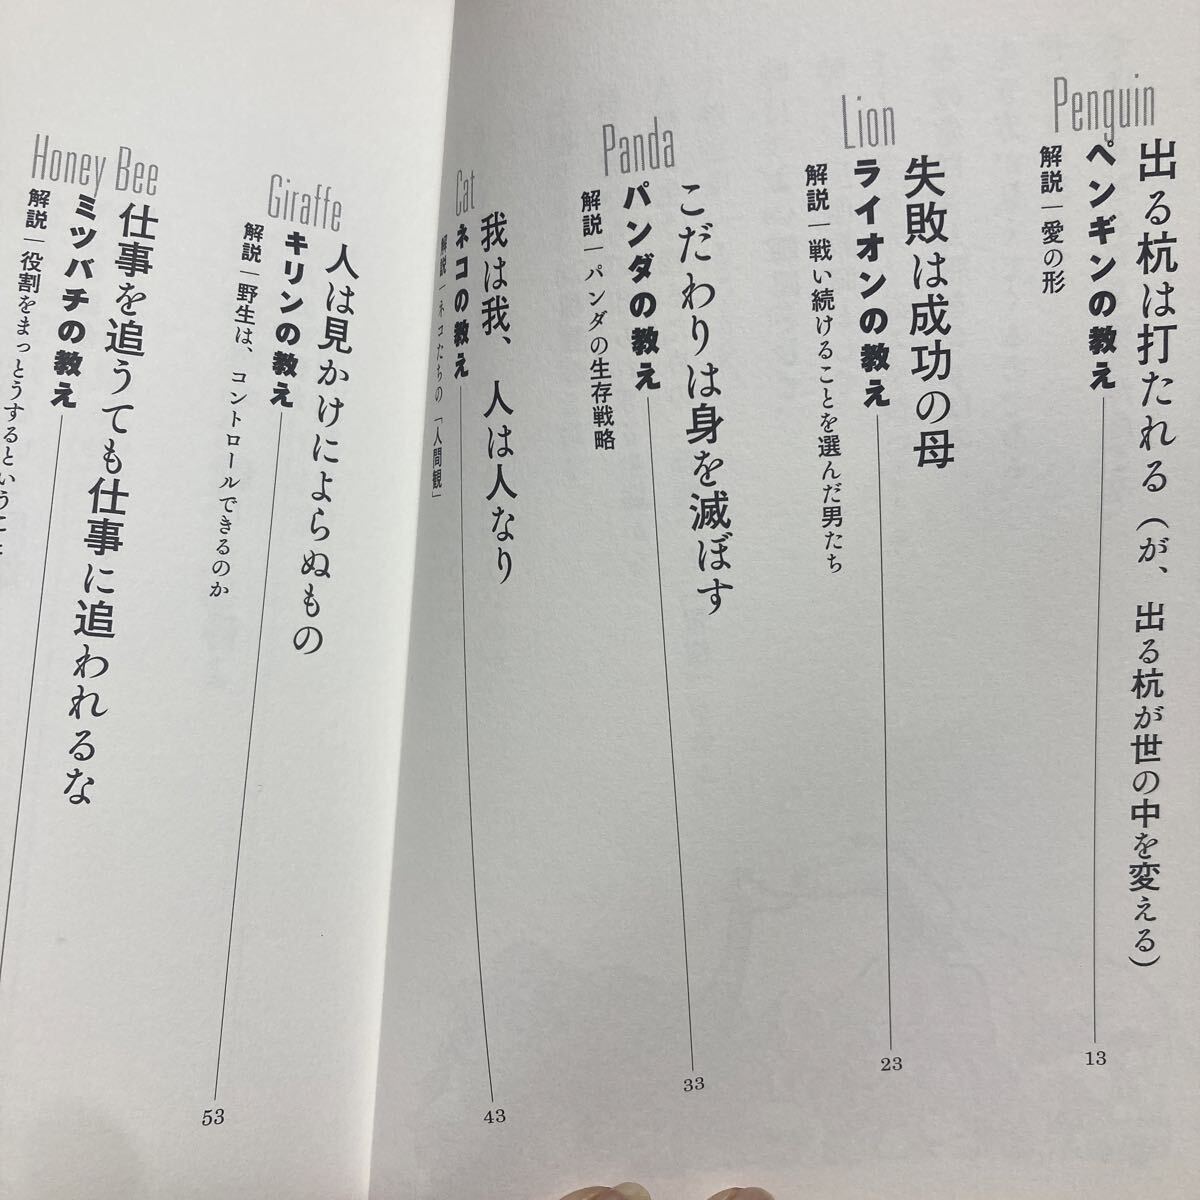 Penguin
出る杭は打たれる（が、出る杭が世の中を変える）
ペンギンの教え 13
解説｜愛の形
Lion
失敗は成功の母
ライオンの教え 23
解説｜戦い続けることを選んだ男たち
Panda
こだわりは身を滅ぼす
パンダの教え 33
解説｜パンダの生存戦略
Cat
我は我、人は人なり
ネコの教え 43
解説｜ネコたちの「人間観」
Giraffe
人は見かけによらぬもの
キリンの教え 53
解説｜野生は、コントロールできるのか
Honey Bee
仕事を追うても仕事に追われるな
ミツバチの教え
解説｜役割をまっとうするということ